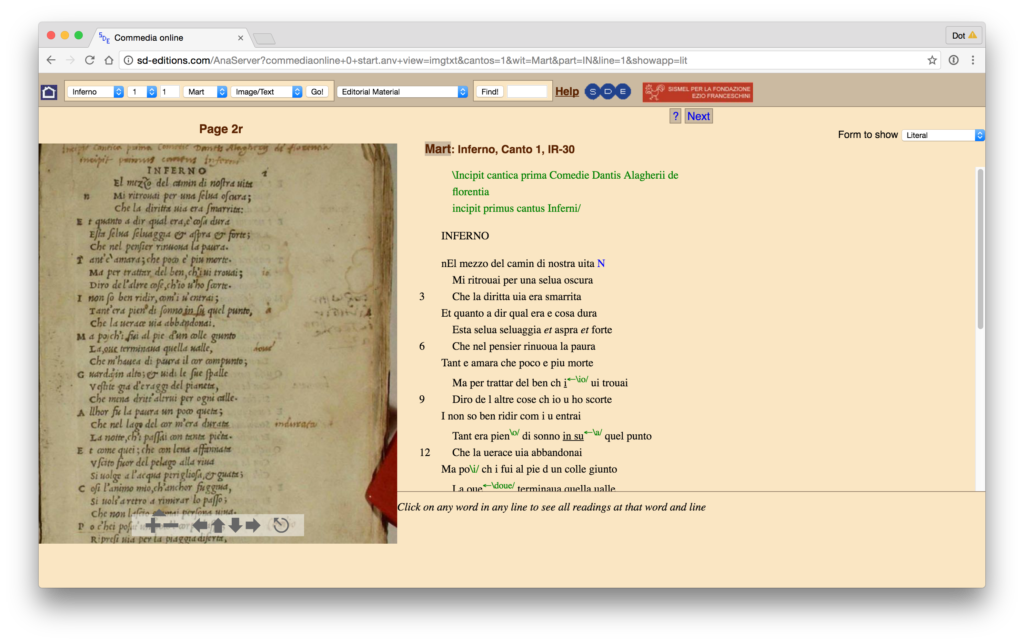 Commedia online
Dot
sd-editions.com/AnaServer?commediaonline+0+start.anv+view=imgtxt&cantos=1&wit=Mart&part=IN&line=1&showapp=lit
Inferno 1 1 Mart Image/Text Go! Editorial Material Find! Help S D E SISMEL PER LA FONDAZIONE
EZIO FRANCESCHINI
? Next
Page 2r
Form to show Literal
INFERNO
El mezzo del camin di nostra uita
n Mi ritrouai per una selua oscura;
Che la diritta uia era smarrita:
E t quanto a dir qual era, è cosa dura
Esta selua seluaggia & aspra & forte;
Che nel pensier rinuoua la paura.
T ant'è amara; che poco è piu morte.
Ma per trattar del ben, ch'i ui trouai;
Diro de l'altre cose, ch'io u'ho scorte.
I non so ben ridir, com'i u'entrai;
Tant'era pien di sonno in su quel punto,
Che la uerace uia abbandonai.
M a po ch'i fui al pie d'un colle giunto
La oue terminaua quella ualle,
Che m'hauea di paura il cor compunto;
G uardai in alto; & uidi le sue spalle
Vestite gia d'e raggi del pianeta,
Che mena dritt'altrui per ogni calle.
A llhor fu la paura un poco queta;
Che nel lago del cor m'era durata
indurata
La notte, ch'i passai con tanta pieta.
E t come quei; che con lena affannata
Vscito fuor del pelago alla riua
Si uolge a l'acqua perigliosa, & guata;
C osi l'animo mio, ch'anchor fuggiua,
Si uols'a retro a rimirar lo passo;
Che non lascio giamai persona uiua.
P o c'hei posat
R ipresi uia per la piaggia diserta,
Mart: Inferno, Canto 1, IR-30
\Incipit cantica prima Comedie Dantis Alagherii de
florentia
incipit primus cantus Inferni/
INFERNO
nEl mezzo del camin di nostra uita N
Mi ritrouai per una selua oscura
3 Che la diritta uia era smarrita
Et quanto a dir qual era e cosa dura
Esta selua seluaggia et aspra et forte
6 Che nel pensier rinuoua la paura
Tant e amara che poco e piu morte
Ma per trattar del ben ch i←\io/ ui trouai
9 Diro de l altre cose ch io u ho scorte
I non so ben ridir com i u entrai
Tant era pien\o/ di sonno in su←\a/ quel punto
12 Che la uerace uia abbandonai
Ma po\i/ ch i fui al pie d un colle giunto
La oue←\doue/ terminaua quella ualle
Click on any word in any line to see all readings at that word and line